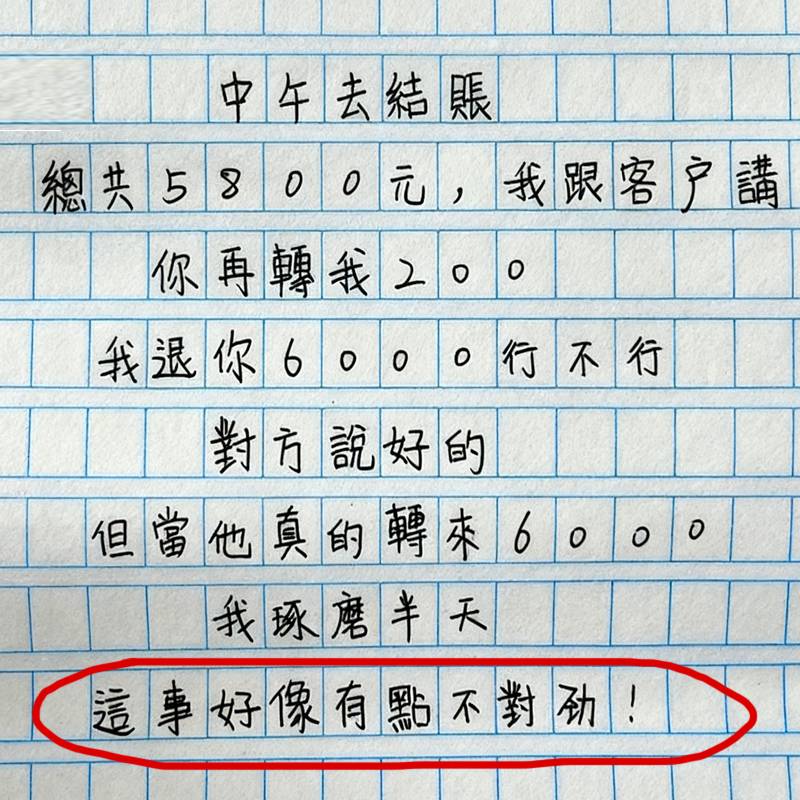 中午去結賬
總共5800元，我跟客户講
你再轉我200
我退你6000行不行
對方說好的
但當他真的轉來6000
我琢磨半天
這事好像有點不對劲！